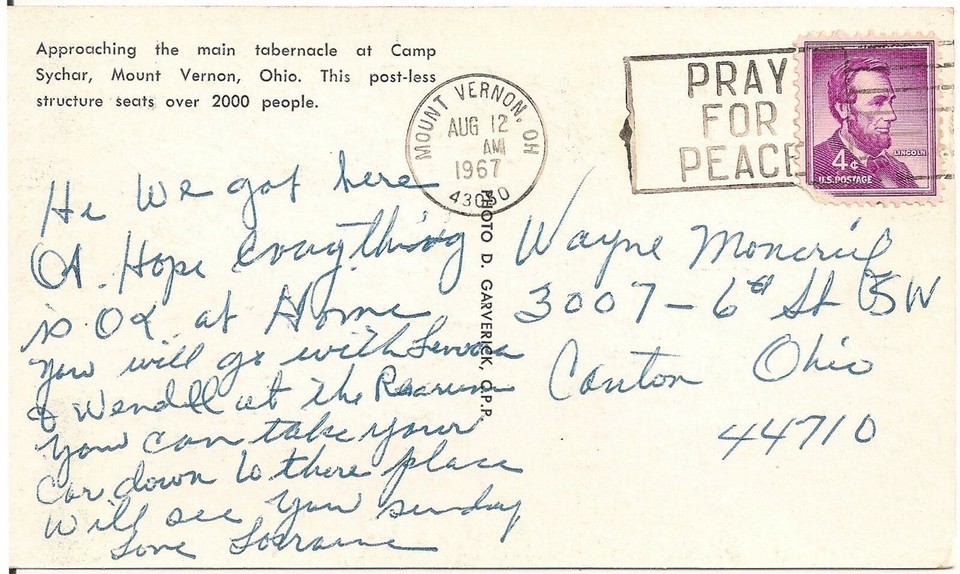 Approaching the main tabernacle at Camp
Sychar, Mount Vernon, Ohio. This post-less
structure seats over 2000 people.
MOUNT VERNON, OH
AUG 12
AM
1967
43050
PRAY
FOR
PEACE
LINCOLN
4¢
U.S. POSTAGE
PHOTO D. GARVERICK, C.P.P.
Hi We got here
OK. Hope everything
is OK at Home
You will go with
& Wendell at the
You can take your
Car down to there place
Will see you Sunday
Love Lorraine
Wayne
3007 - 6th St SW
Canton Ohio
44710